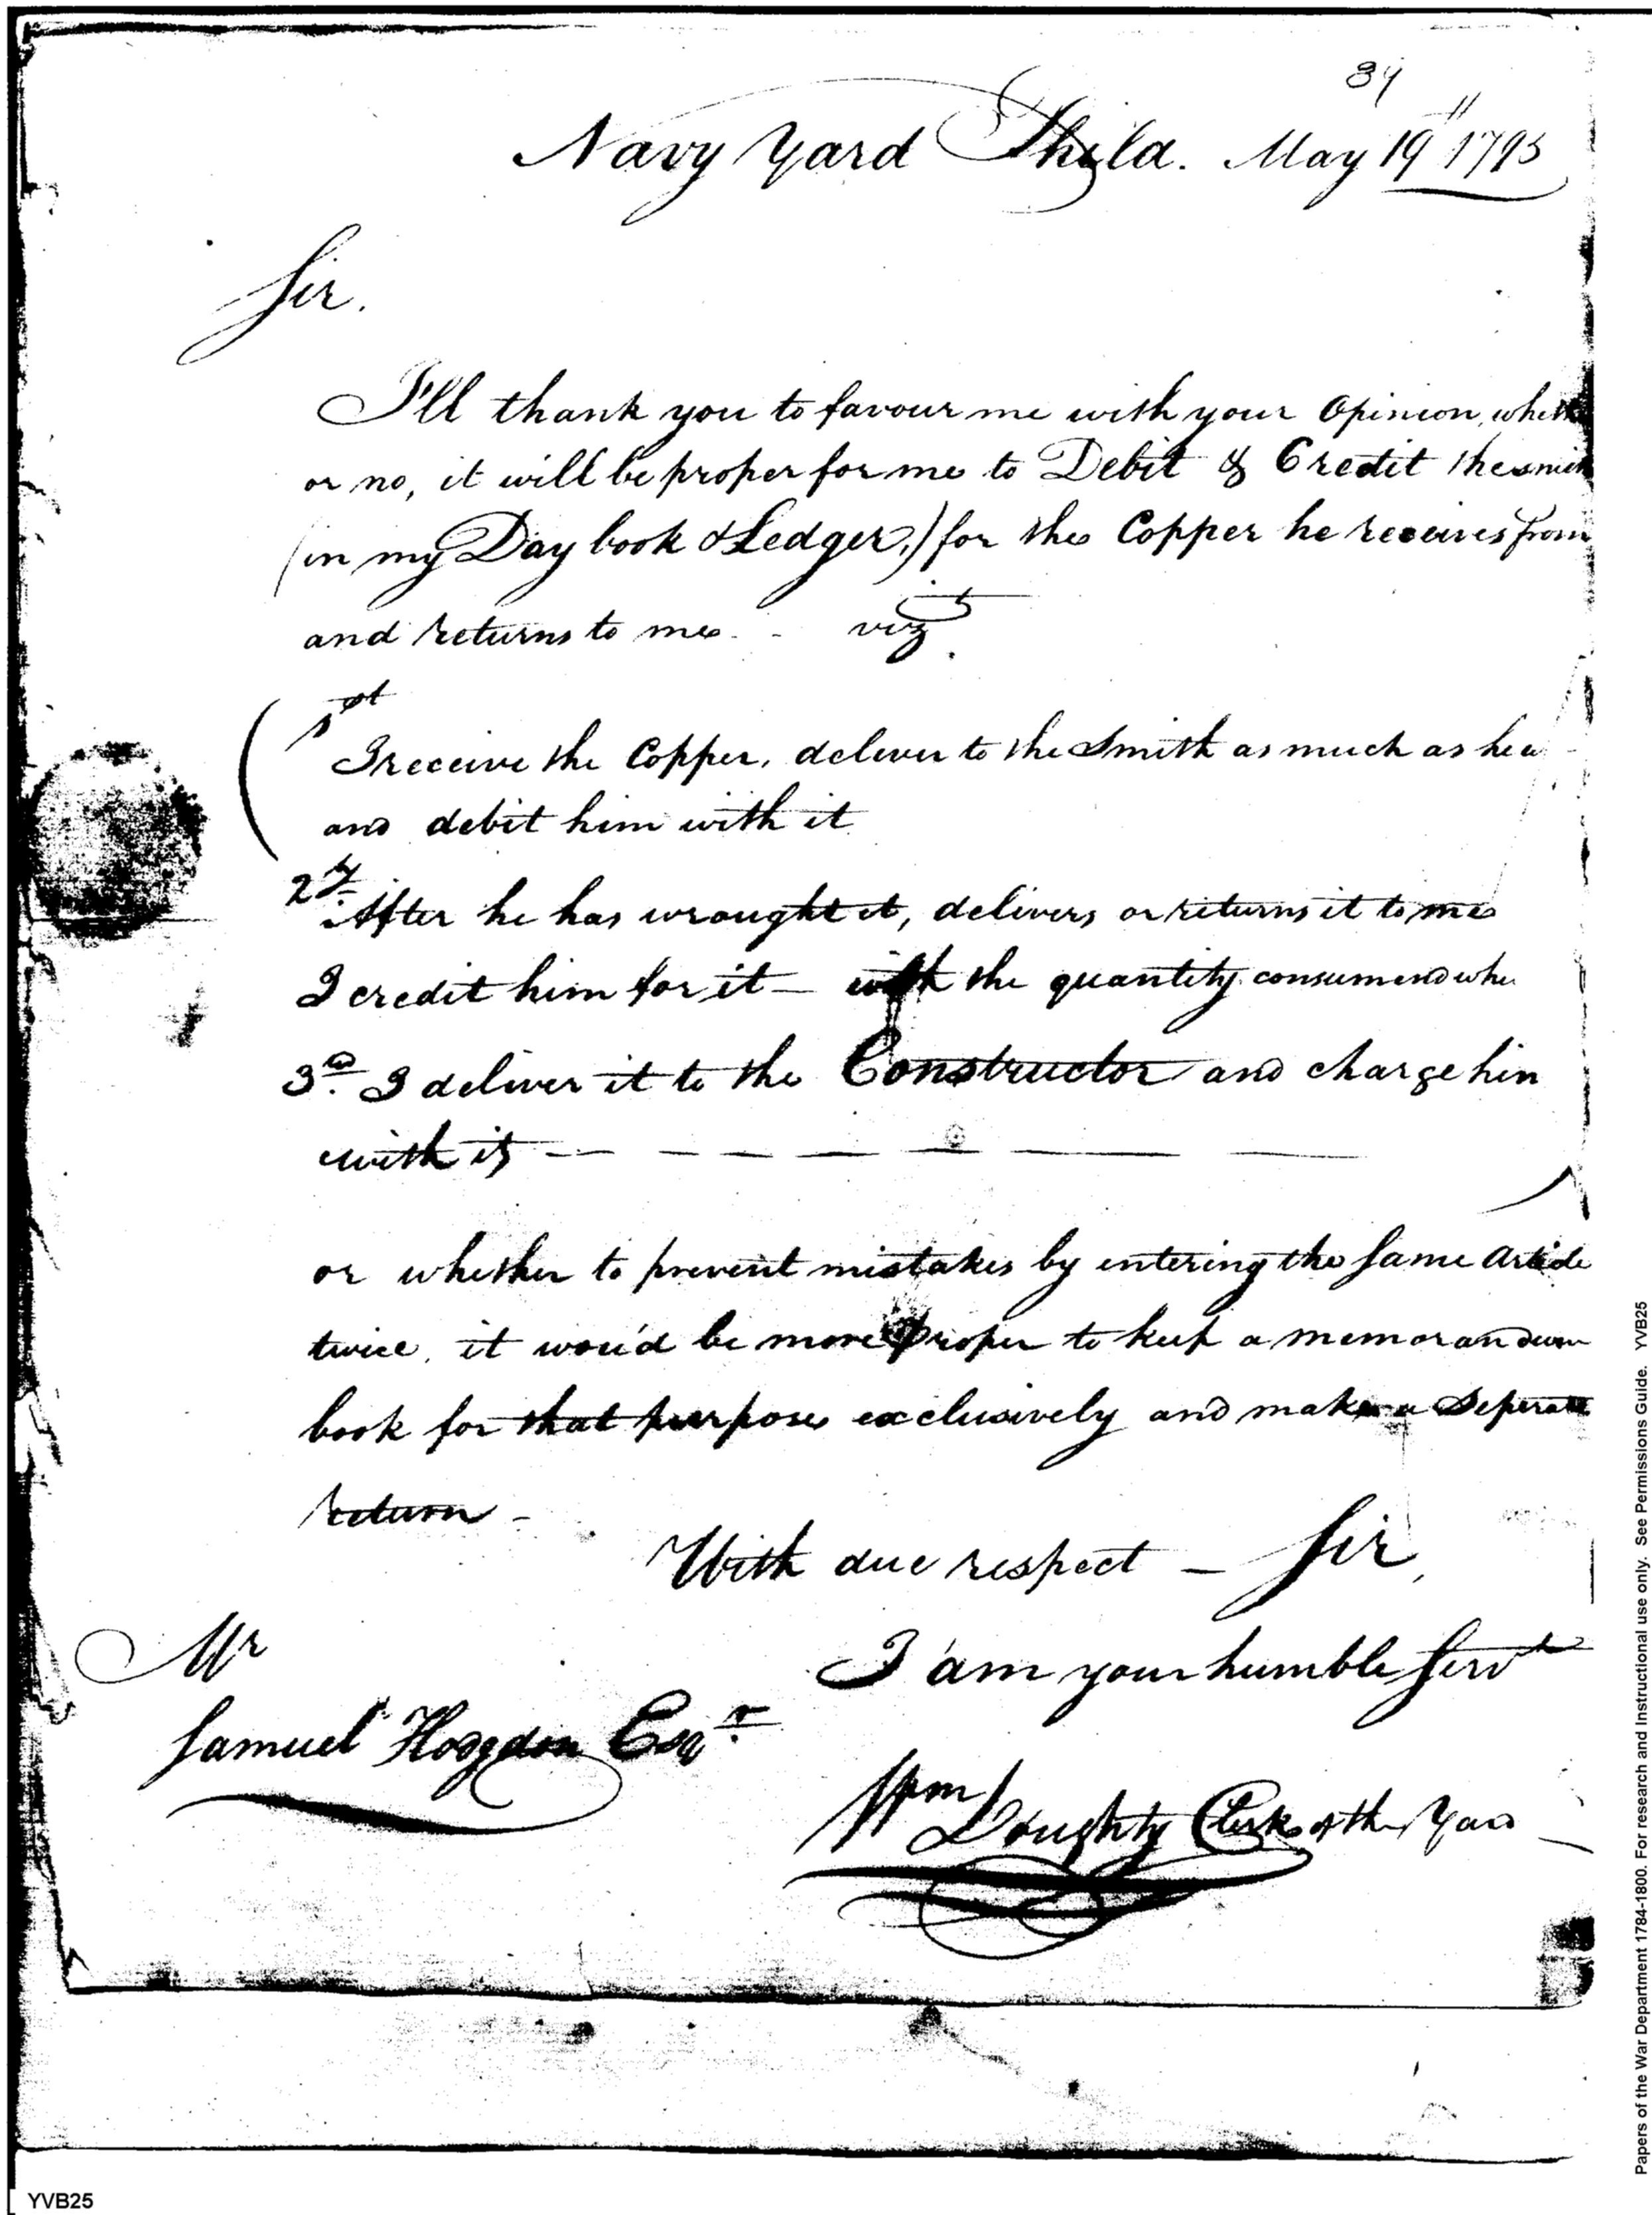 34
Navy Yard Phila. May 19th 1795
Sir.
I'll thank you to favour me with your Opinion, wheth
or no, it will be proper for me to Debit & Credit the smith
(in my Day book & Ledger,) for the Copper he receives from
and returns to me - viz
1st
I receive the Copper, deliver to the Smith as much as he
and debit him with it
2ly After he has wrought it, delivers or returns it to me
I credit him for it — with the quantity consumed whe
3d. I deliver it to the Constructor and charge him
with it — — — — — — —
or whether to prevent mistakes by entering the same article
twice, it wou'd be more proper to keep a memorandum
book for that purpose exclusively and make a Seperate
return -
With due respect — Sir,
Mr
I am your humble Servt
Samuel Hodgdon Esqr.
Wm Doughty Clerk of the Yard
Papers of the War Department 1784-1800. For research and Instructional use only. See Permissions Guide. YVB25
YVB25